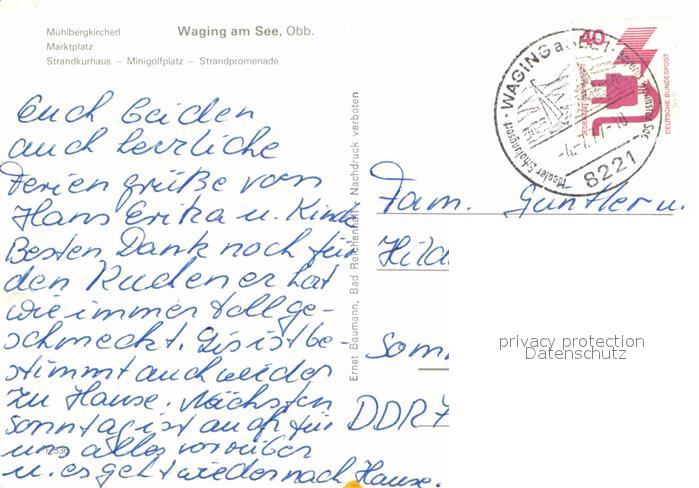 Mühlbergkircherl
Marktplatz
Strandkurhaus — Minigolfplatz — Strandpromenade
Waging am See, Obb.
Euch beiden
auch herzliche
Feriengrüße von
Hans Erika u. Kinder
Besten Dank noch für
den Kuchen er hat
wie immer toll ge-
schmeckt. Gis ist be-
stimmt auch wieder
zu Hause. Nächsten
Sonntag ist auch für
uns alles vorüber
u. es geht wieder nach Hause.
Ernst Baumann, Bad Reichenhall · Nachdruck verboten
WAGING a. SEE 1
Idealer Erholungsort
-4.-7.77-
8221
40
DEUTSCHE BUNDESPOST
Fam. Günther u.
Hild
Som
DDR 7
privacy protection
Datenschutz